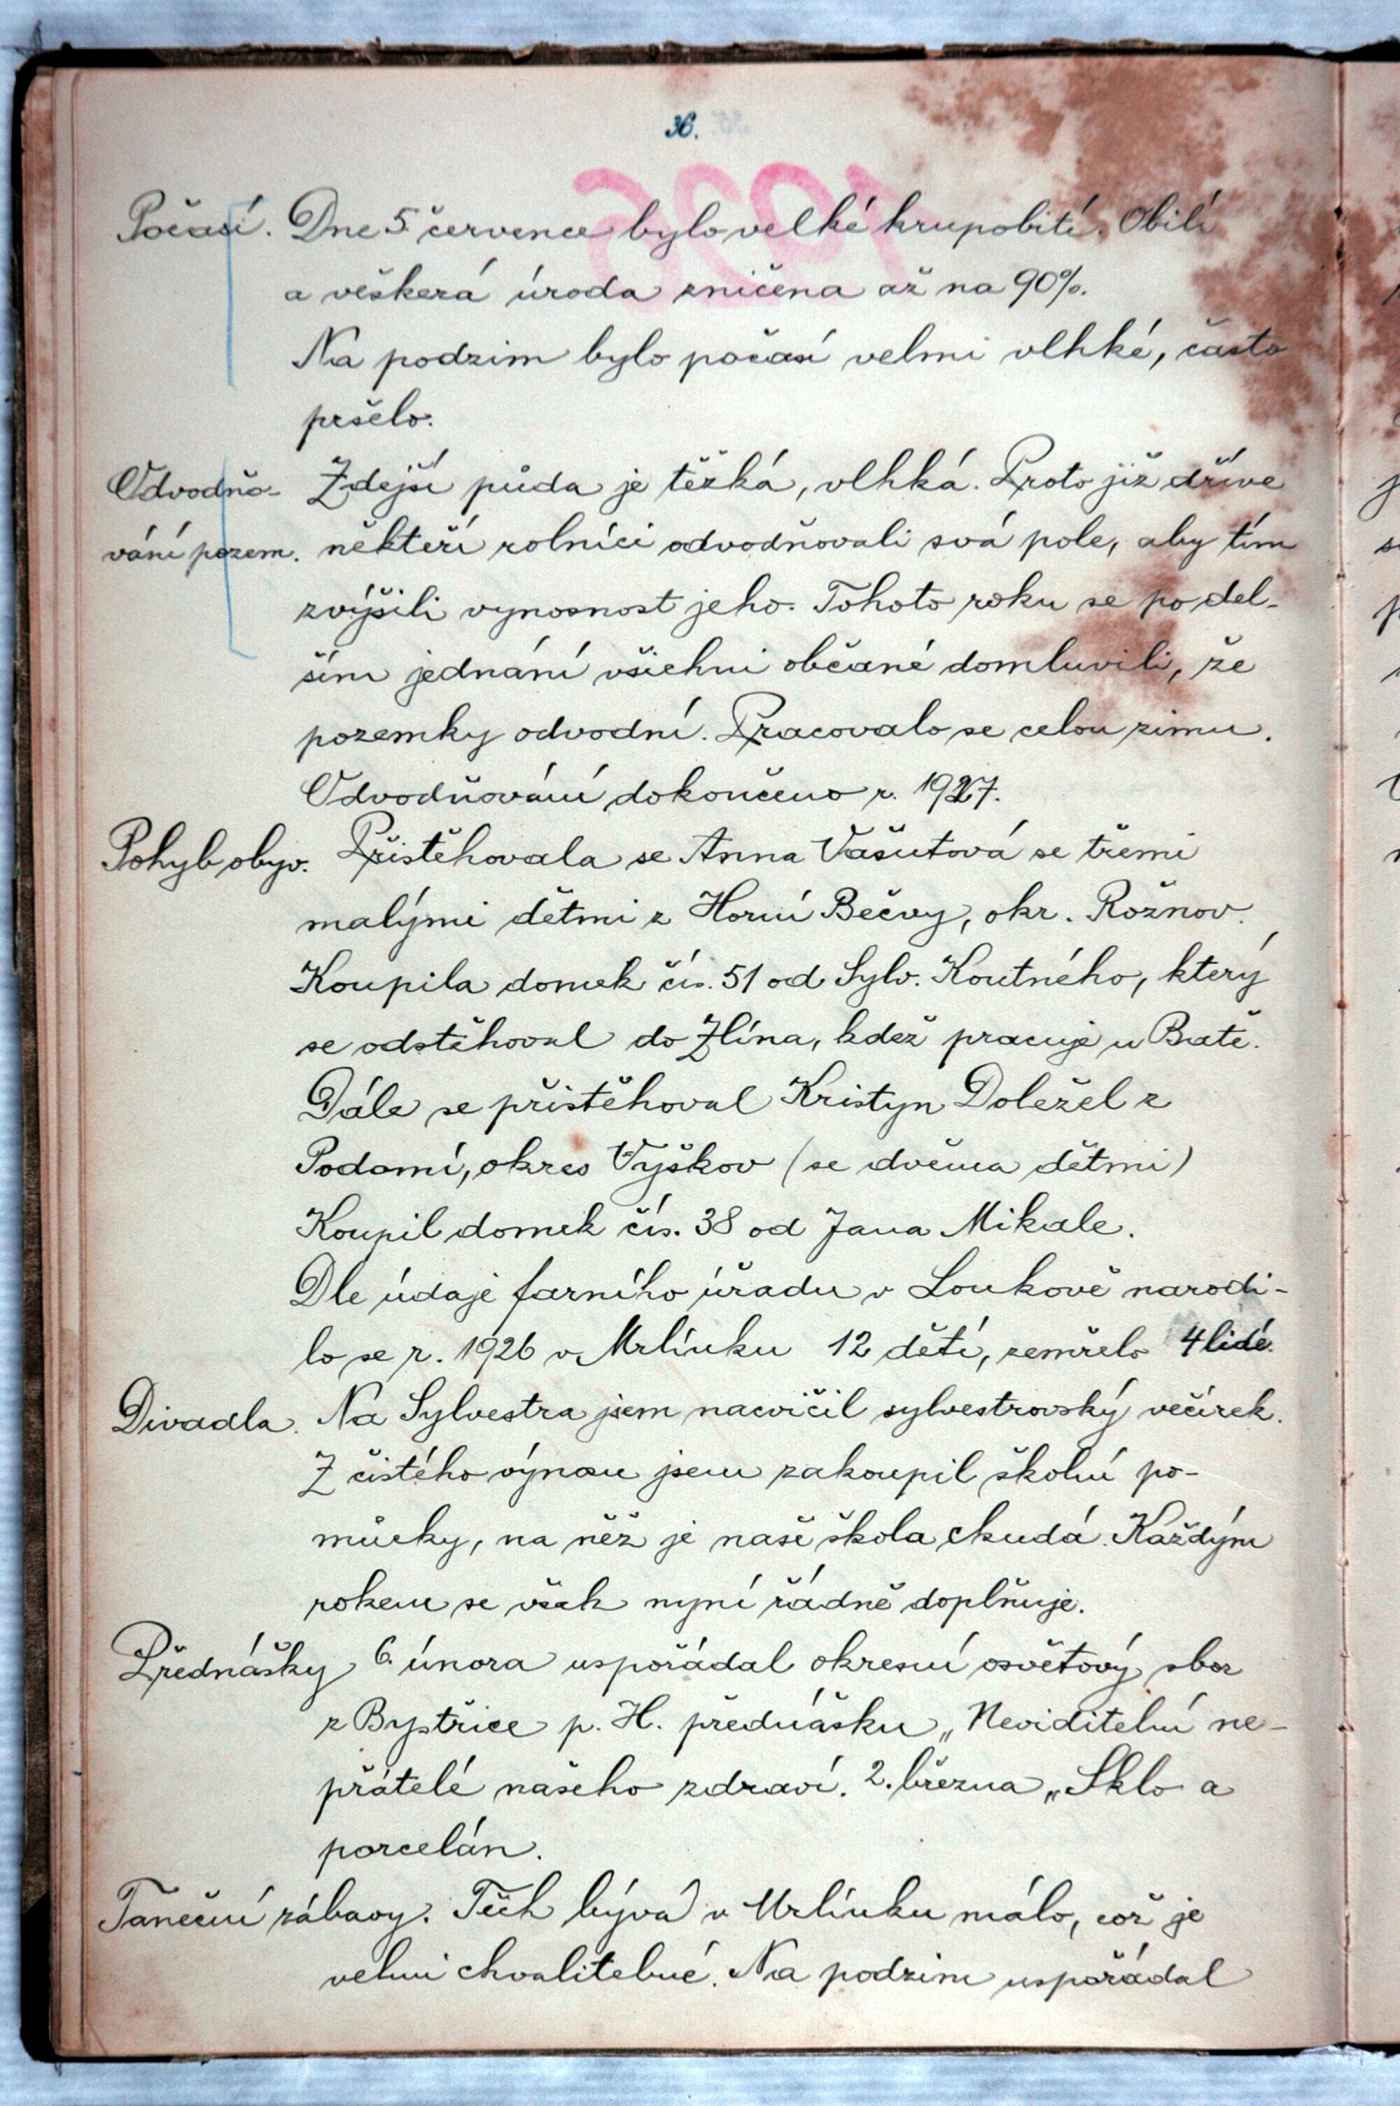 36.
Počasí. Dne 5 července bylo velké krupobití. Obilí
a veškerá úroda zničena až na 90%.
Na podzim bylo počasí velmi vlhké, často
pršelo.
Odvodňo- Zdejší půda je těžká, vlhká. Proto již dříve
vání pozem. někteří rolníci odvodňovali svá pole, aby tím
zvýšili vynosnost jeho. Tohoto roku se po del-
ším jednání všichni občané domluvili, že
pozemky odvodní. Pracovalo se celou zimu.
Odvodňování dokončeno r. 1927.
Pohyb obyv. Přistěhovala se Anna Vašutová se třemi
malými dětmi z Horní Bečvy, okr. Rožnov.
Koupila domek čís. 51 od Sylv. Koutného, který
se odstěhoval do Zlína, kdež pracuje u Batě.
Dále se přistěhoval Kristyn Doležel z
Podomí, okres Vyškov (se dvěma dětmi)
Koupil domek čís. 38 od Jana Mikale.
Dle údaje farního úřadu v Loukově narodi-
lo se r. 1926 v Mrlínku 12 dětí, zemřelo 4 lidé.
Divadla. Na Sylvestra jsem nacvičil sylvestrovský večírek.
Z čistého výnosu jsem zakoupil školní po-
můcky, na něž je naše škola chudá. Každým
rokem se však nyní řádně doplňuje.
Přednášky 6. února uspořádal okresní osvětový sbor
z Bystřice p. H. přednášku „Neviditelní ne-
přátelé našeho zdraví. 2. března „Sklo a
porcelán.
Taneční zábavy. Těch bývá v Mrlínku málo, což je
velmi chvalitebné. Na podzim uspořádal